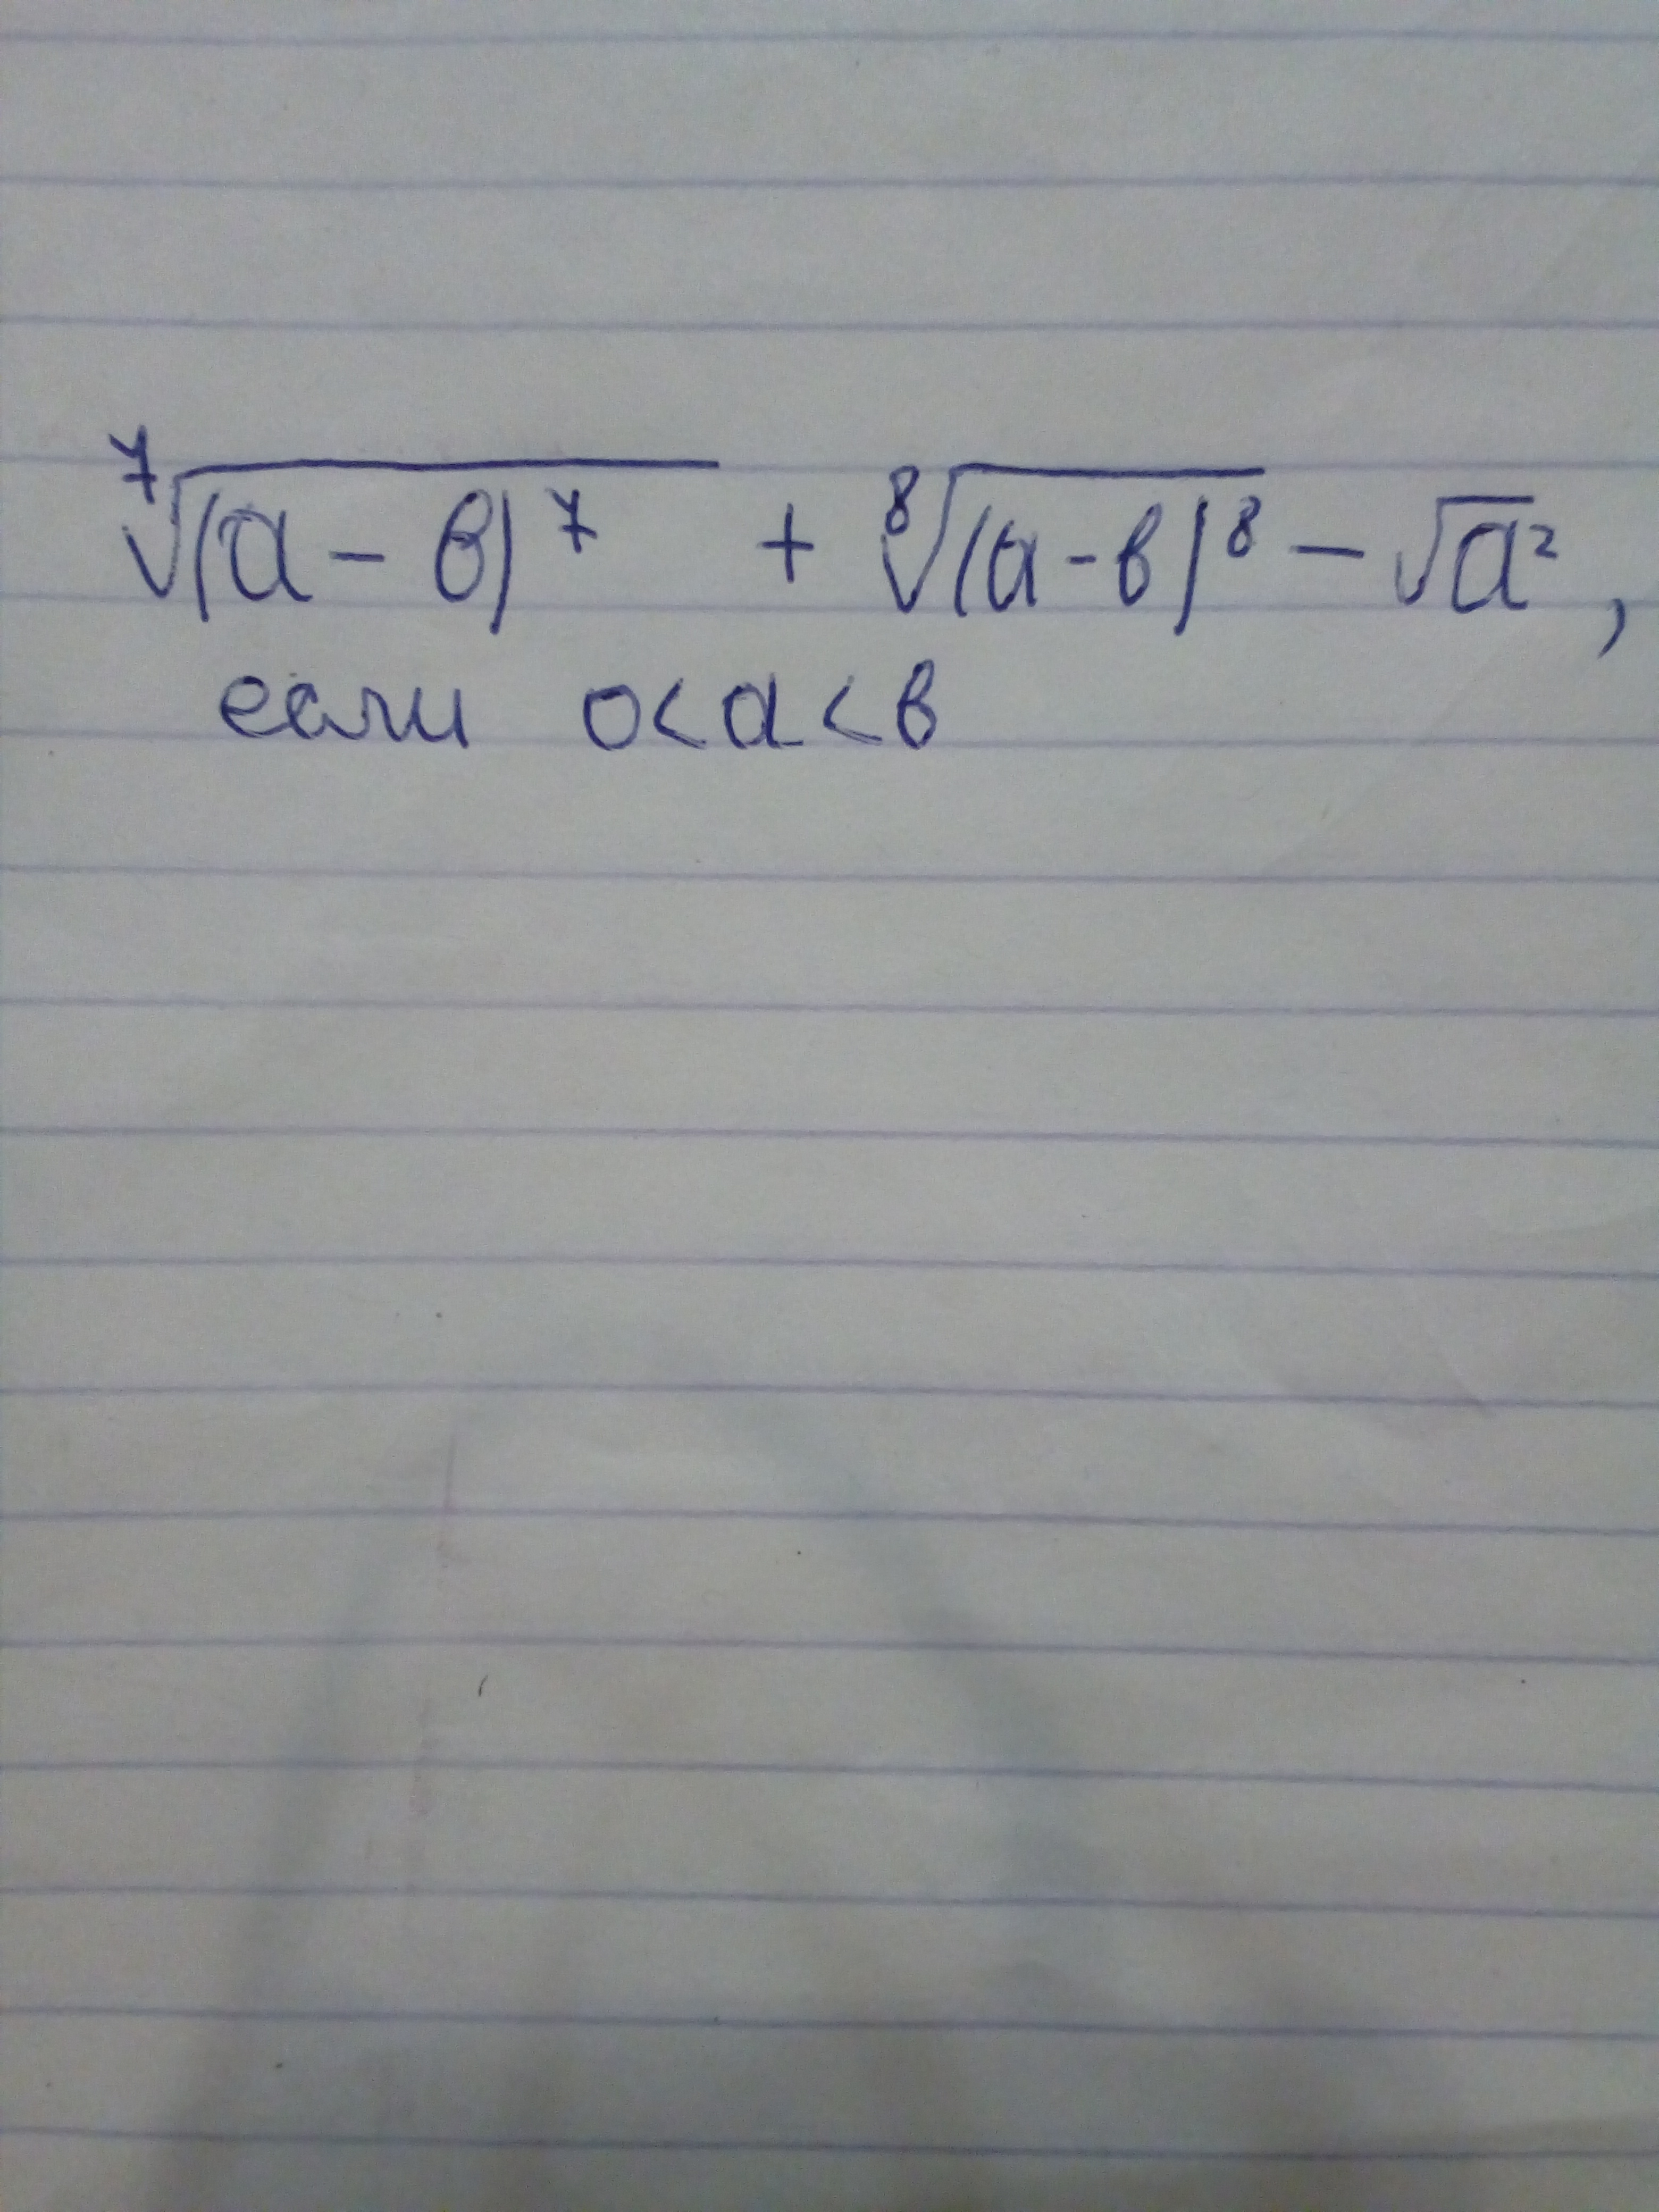 ⁷√(a - в)⁷ + ⁸√(a-в)⁸ - √a²,
если 0<a<в